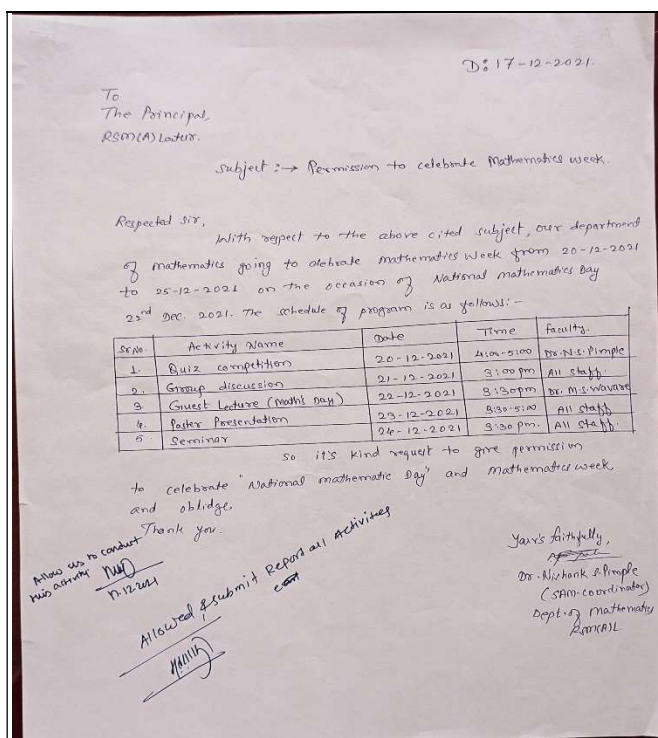 D: 17-12-2021.
To
The Principal,
RSM(A) Latur.
Subject :→ Permission to celebrate Mathematics week.
Respected Sir,
With respect to the above cited subject, our department
of mathematics going to celebrate mathematics Week from 20-12-2021
to 25-12-2021 on the occasion of National mathematics Day
22nd Dec. 2021. The schedule of program is as follows:-
Sr No. Activity Name Date Time faculty.
1. Quiz competition 20-12-2021 4:00-5:00 Dr. N.S. Pimple
2. Group discussion 21-12-2021 3:00pm All staff.
3. Guest Lecture (Math's Day) 22-12-2021 3:30pm Dr. M.S. Wavare
4. Poster Presentation 23-12-2021 3:30-5:00 All staff
5 Seminar 24-12-2021 3:30 pm. All staff.
So it's kind request to give permission
to celebrate "National mathematic Day" and mathematics week
and oblidge.
Thank you.
Allow us to conduct
this activity
17.12.2021
Allowed & submit Report all Activities
Your's faithfully,
Dr. Nishank S. Pimple
(SAM-coordinator)
Dept. of mathematics
RSM(A)L